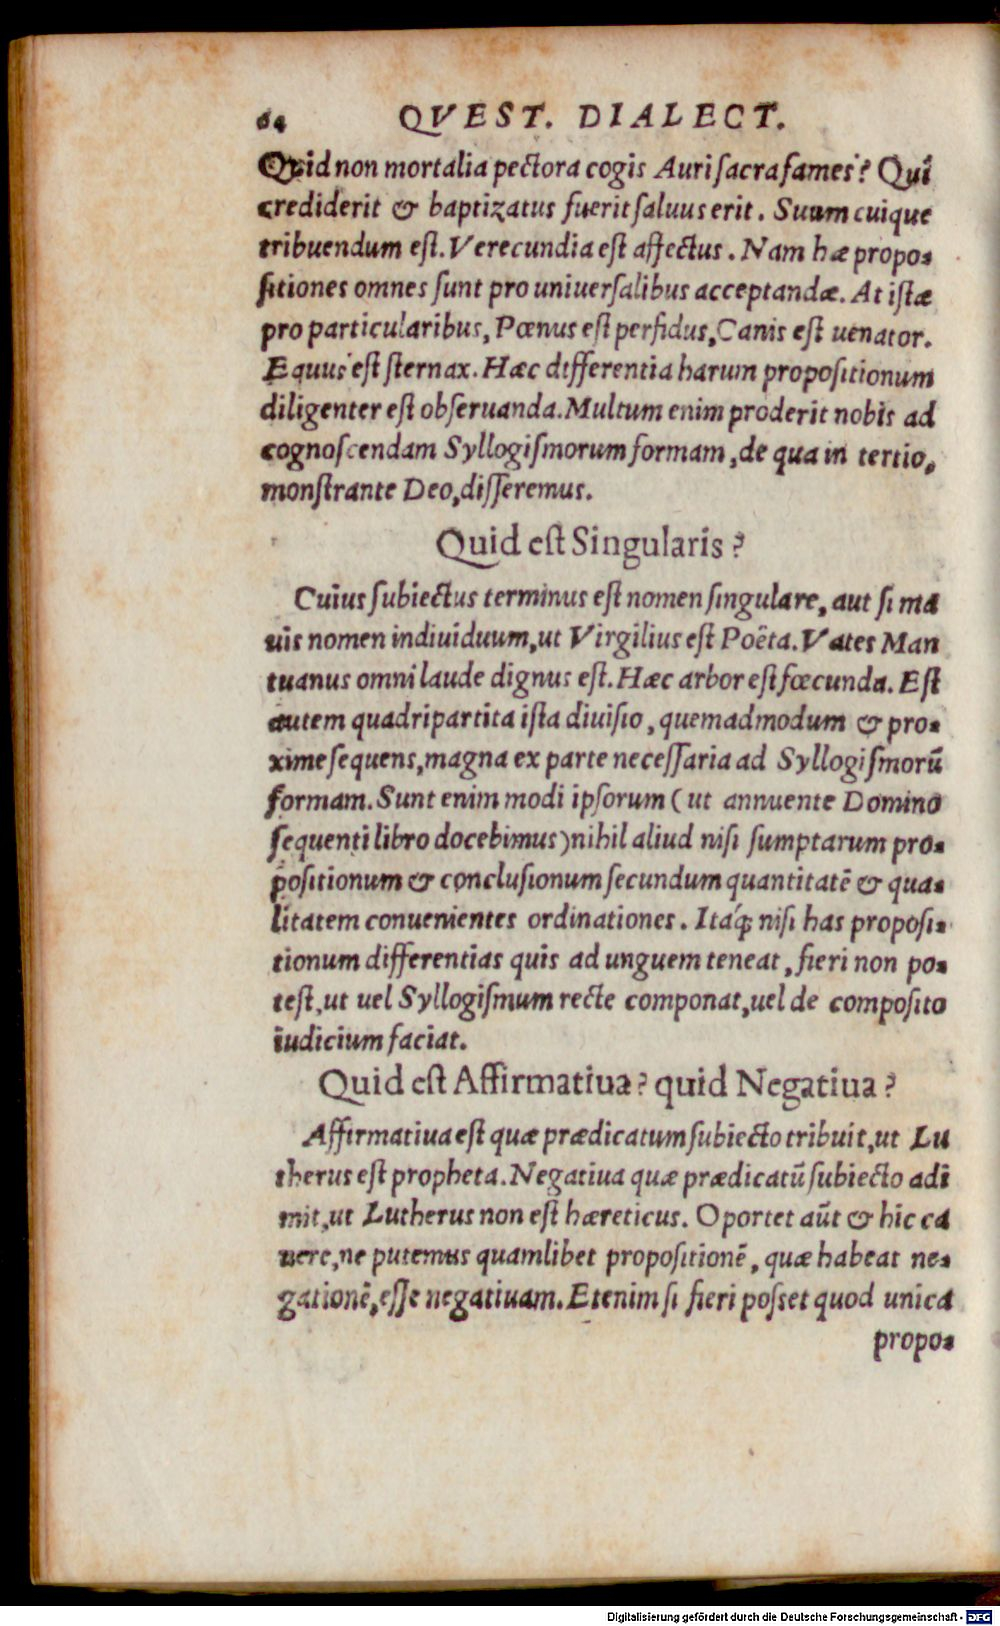 64 QVEST. DIALECT.
Quid non mortalia pectora cogis Auri sacra fames? Qui
crediderit & baptizatus fuerit saluus erit. Suum cuique
tribuendum est. Verecundia est affectus. Nam hæ propo-
sitiones omnes sunt pro uniuersalibus acceptandæ. At istæ
pro particularibus, Pœnus est perfidus, Canis est uenator.
Equus est sternax. Hæc differentia harum propositionum
diligenter est obseruanda. Multum enim proderit nobis ad
cognoscendam Syllogismorum formam, de qua in tertio,
monstrante Deo, disseremus.
Quid est Singularis?
Cuius subiectus terminus est nomen singulare, aut si ma
uis nomen indiuiduum, ut Virgilius est Poëta. Vates Man
tuanus omni laude dignus est. Hæc arbor est fœcunda. Est
autem quadripartita ista diuisio, quemadmodum & pro-
xime sequens, magna ex parte necessaria ad Syllogismorū
formam. Sunt enim modi ipsorum (ut annuente Domino
sequenti libro docebimus) nihil aliud nisi sumptarum pro-
positionum & conclusionum secundum quantitatē & qua-
litatem conuenientes ordinationes. Itaq́; nisi has proposi-
tionum differentias quis ad unguem teneat, fieri non po-
test, ut uel Syllogismum recte componat, uel de composito
iudicium faciat.
Quid est Affirmatiua? quid Negatiua?
Affirmatiua est quæ prædicatum subiecto tribuit, ut Lu
therus est propheta. Negatiua quæ prædicatū subiecto adi
mit, ut Lutherus non est hæreticus. Oportet aūt & hic ca
uere, ne putemus quamlibet propositionē, quæ habeat ne-
gationē, esse negatiuam. Etenim si fieri posset quod unica
propo-
Digitalisierung gefördert durch die Deutsche Forschungsgemeinschaft - DFG